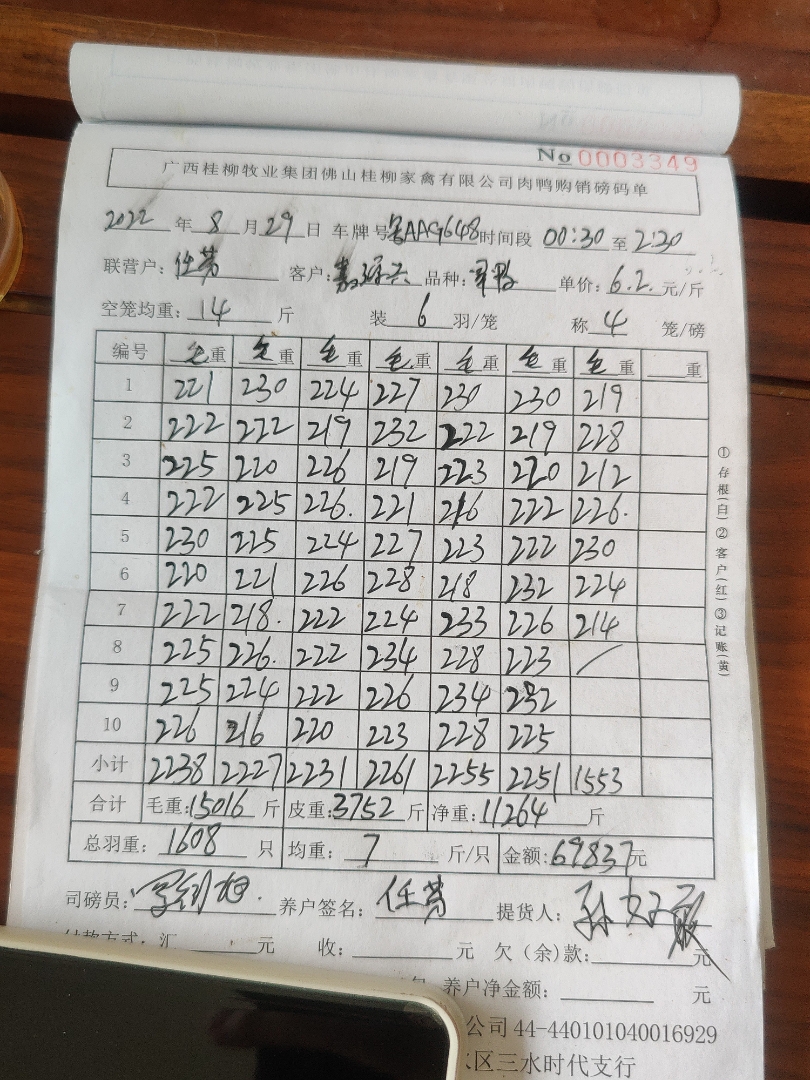 No 0003349
广西桂柳牧业集团佛山桂柳家禽有限公司肉鸭购销磅码单
2022 年 8 月 29 日 车牌号 AAG648 时间段 00:30 至 2:30
联营户: 任 客户: 品种: 单价: 6.2 元/斤
空笼均重: 14 斤 装 6 羽/笼 称 4 笼/磅
编号 毛重 毛重 毛重 毛重 毛重 毛重 毛重 重
1 221 230 224 227 230 230 219
2 222 222 219 232 222 219 228
3 225 220 226 219 223 220 212
4 222 225 226. 221 216 222 226.
5 230 225 224 227 223 222 230
6 220 221 226 228 218 232 224
7 222 218. 222 224 233 226 214
8 225 226. 222 234 228 223 /
9 225 224 222 226 234 232
10 226 216 220 223 228 225
小计 2238 2227 2231 2261 2255 2251 1553
合计 毛重: 15016 斤 皮重: 3752 斤 净重: 11264 斤
总羽重: 1608 只 均重: 7 斤/只 金额: 69837 元
司磅员: 养户签名: 任 提货人: 孙
付款方式: 汇 元 收: 元 欠(余)款: 元
养户净金额: 元
公司 44-440101040016929
区三水时代支行
①存根(白)②客户(红)③记账(黄)